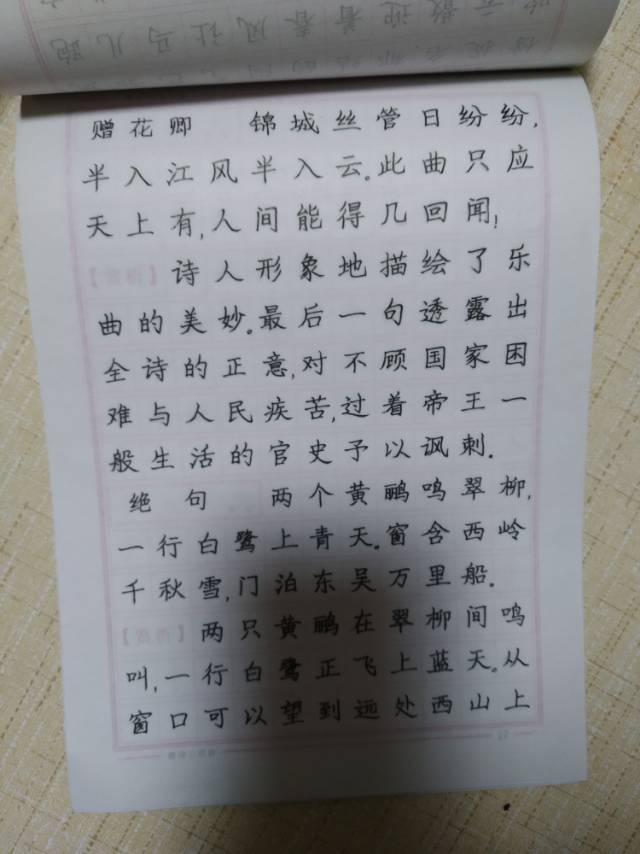 赠花卿 锦城丝管日纷纷,
半入江风半入云。此曲只应
天上有,人间能得几回闻!
诗人形象地描绘了乐
曲的美妙。最后一句透露出
全诗的正意,对不顾国家困
难与人民疾苦,过着帝王一
般生活的官史予以讽刺。
绝句 两个黄鹂鸣翠柳,
一行白鹭上青天。窗含西岭
千秋雪,门泊东吴万里船。
两只黄鹂在翠柳间鸣
叫,一行白鹭正飞上蓝天。从
窗口可以望到远处西山上